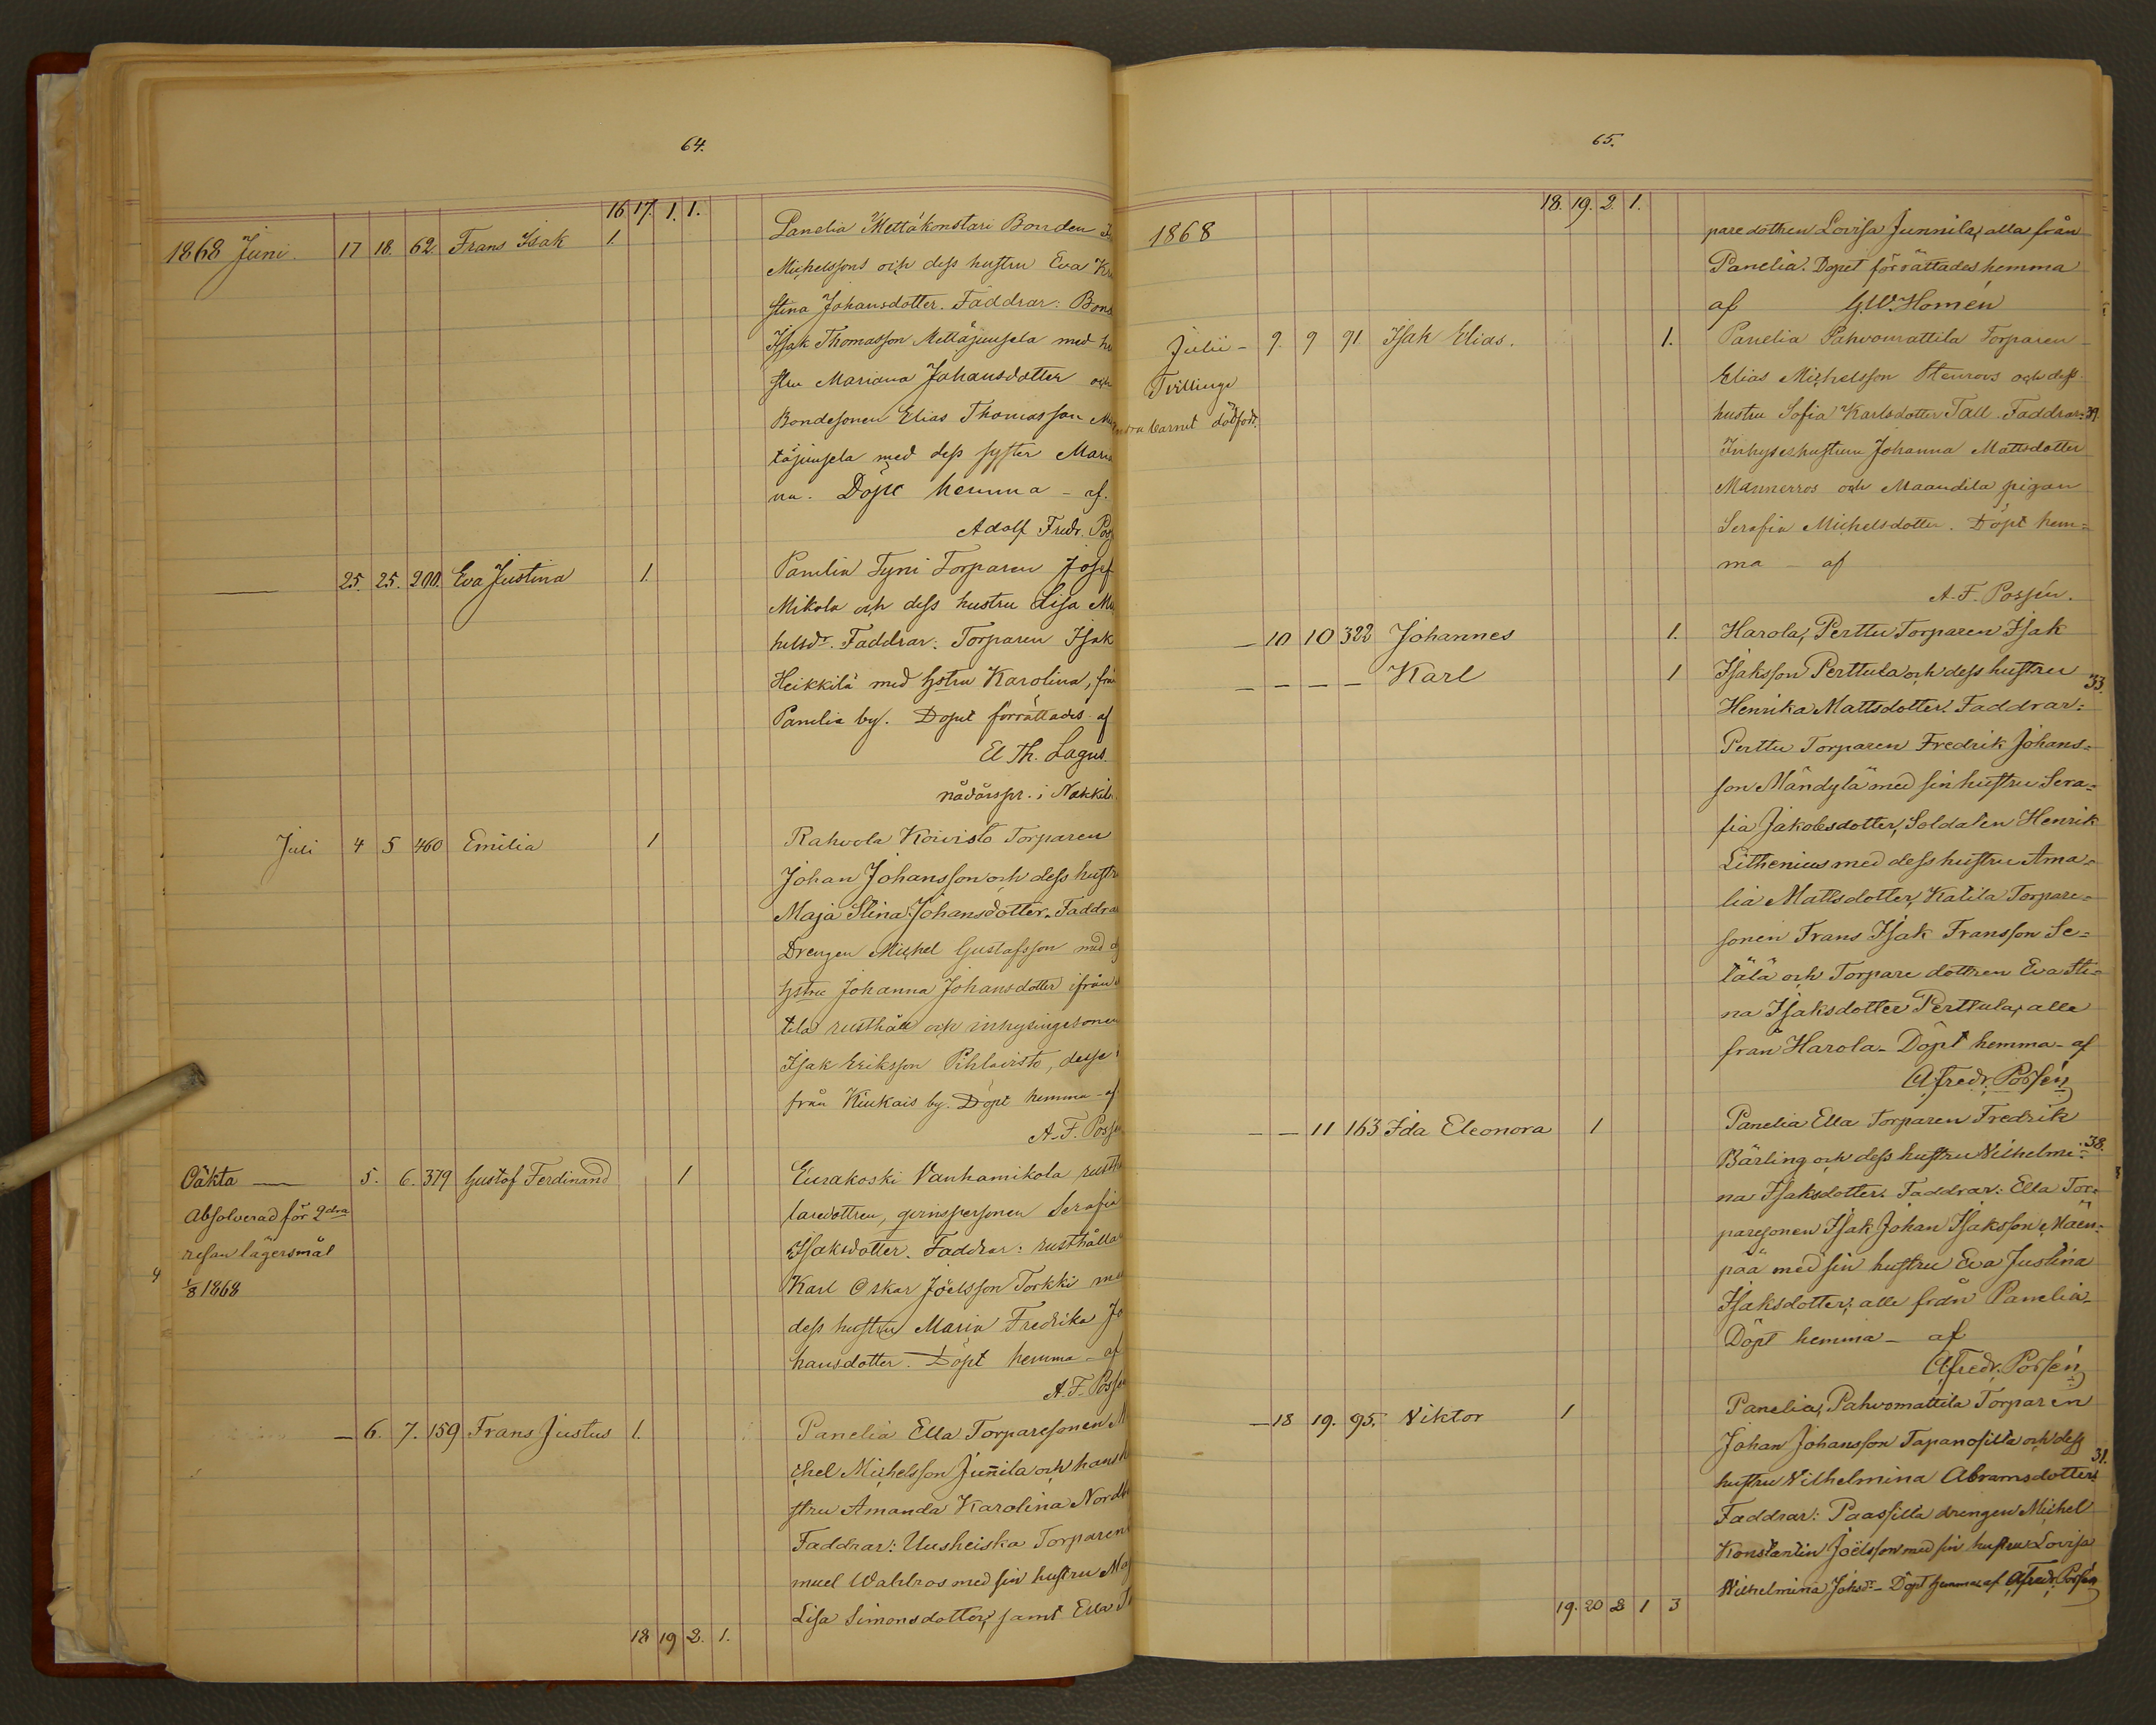 64.
16 17. 1. 1.
1868 Juni. 17 18. 62 Frans Isak 1. Panelia Mettäkonstari Bonden
Michelssons och dess hustru Eva
stina Johansdotter. Faddrar:
Isak Thomasson Mettäjunsela med
stru Mariana Johansdotter och
Bondesonen Elias Thomasson
täjunsela med dess syster
na. Döpt hemma - af.
Adolf Fredr.
25. 25. 200. Eva Justina 1. Panelia Tyni Torparen Josef
Mikola och dess hustru Lisa
helsdr. Faddrar: Torparen Isak
Heikkilä med hstru Karolina,
Panelia by. Dopet förrättades af
El Th. Lagus.
nådårspr. i
Juli 4 5 460 Emilia 1 Rahvola Koivisto Torparen
Johan Johansson och dess
Maja Stina Johansdotter. Faddrar
Drengen Michel Gustafsson med
hstru Johanna Johansdotter ifrån
tila rusthåll och inhysingesonen
Isak Eriksson Pihlavisto, desse
från Kiukais by. Döpt hemma - af
A. F.
Oäkta 5. 6. 379 Gustof Ferdinand 1 Eurakoski Vanhamikola
Absolverad för 2dra
laredottren, qvinspersonen Serafia
resan lägersmål
Isaksdotter. Faddrar: rusthålla
1/8 1868
Karl Oskar Joëlsson Torkki
dess hustru Maria Fredrika
hansdotter. Döpt hemma - af
A. F.
6. 7. 159 Frans Justus 1. Panelia Ella Torparesonen
chel Michelsson Junnila och
stru Amanda Karolina
Faddrar: Uusheiska Torparen
muel Wahlros med sin hustru
Lisa Simonsdotter, samt Ella
18 19 2. 1.
65.
18. 19. 2. 1.
1868
paredottren Lovisa Junnila, alla från
Panelia. Dopet förrättades hemma
af G. W. Homén
Julii - 9. 9 91 Isak Elias. 1. Panelia Pahvomattila Torparen
Tvillinge
Elias Michelsson Stenroos och dess
barnet dödfödt.
hustru Sofia Karlsdotter Tall. Faddrar: 39.
Inhyseshustrun Johanna Mattsdotter
Mannerros och Maandila pigan
Serafia Michelsdotter. Döpt hem=
ma - af
A. F. Possén.
- 10 10 322 Johannes 1. Harola, Perttu Torparen Isak
- - - - Karl 1 Isaksson Perttula och dess hustru 33.
Henrika Mattsdotter. Faddrar:
Perttu Torparen Fredrik Johans=
son Mändylä med sin hustru Sera=
fia Jakobsdotter, Soldaten Henrik
Lithenius med dess hustru Ama=
lia Mattsdotter, Katila Torpare=
sonen Frans Isak Fransson Se=
tälä och Torpare dottren Eva Sti=
na Isaksdotter Perttula, alle
från Harola. Döpt hemma - af
A Fredr. Possén
- - 11 163 Ida Eleonora 1 Panelia Ella Torparen Fredrik
Bärling och dess hustru Vilhelmi= 38.
na Isaksdotter. Faddrar: Ella Tor=
paresonen Isak Johan Isaksson Mäen=
pää med sin hustru Eva Justina
Isaksdotter, alle från Panelia.
Döpt hemma - af
A Fredr. Possén
- 18 19. 95. Viktor 1 Panelia, Pahvomattila Torparen
Johan Johansson Tapanosilla och dess
hustru Vilhelmina Abramsdotter. 31.
Faddrar: Paassilla drengen Michel
Konstantin Joëlsson med sin hustru Lovisa
Vilhelmina Johsdr. - Döpt hemma af A Fredr. Possén
19. 20 2 1 3